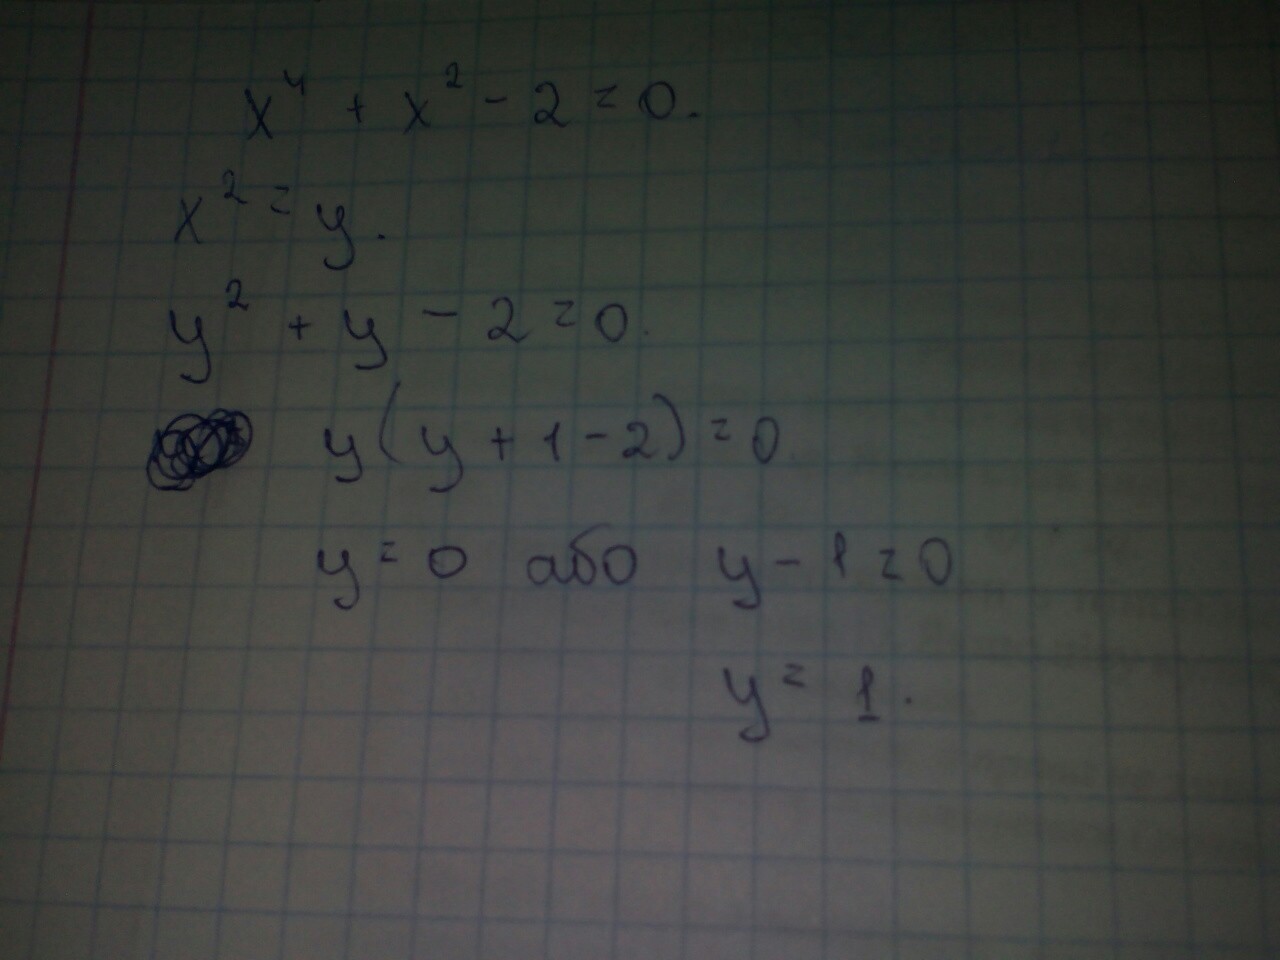 x⁴ + x² - 2 = 0.
x² = y.
y² + y - 2 = 0.
y(y + 1 - 2) = 0
y = 0 або y - 1 = 0
y = 1.